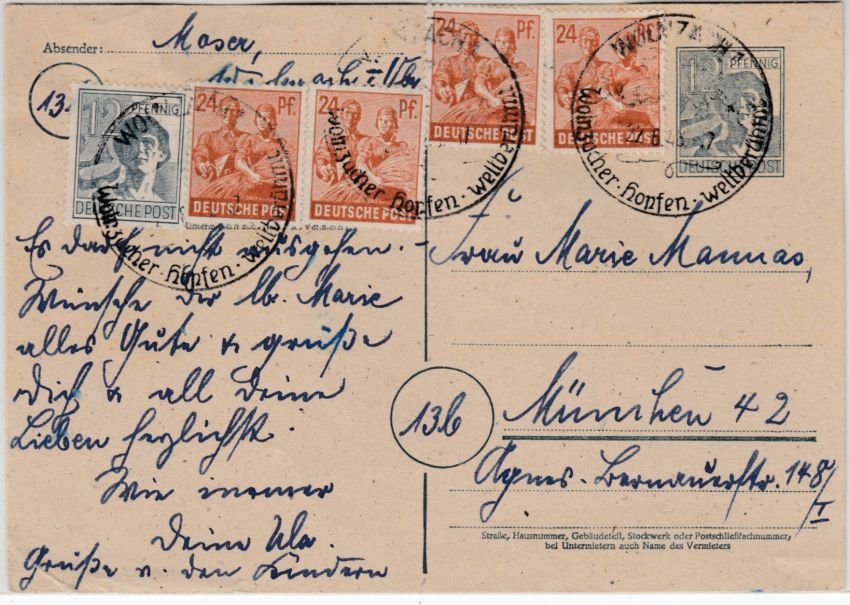 Absender: Moser,
13b
12 PFENNIG
DEUTSCHE POST
24 Pf.
DEUTSCHE POST
24 Pf.
DEUTSCHE POST
24 Pf.
DEUTSCHE POST
24
DEUTSCHE POST
12 PFENNIG
DEUTSCHE POST
Wolnzacher Hopfen · weltberühmt
Wolnzacher · Hopfen · weltberühmt
WOLNZACH
Wolnzacher · Hopfen · weltberühmt
Es darf nicht ausgehen. –
Wünsche der lb. Marie
alles Gute & grüße
Dich & all Deine
Lieben herzlichst.
Wie immer
Deine
Grüße v. den Kindern
Frau Marie
13b
München 42
Agnes-Bernauerstr. 148/
I
Straße, Hausnummer, Gebäudeteil, Stockwerk oder Postschließfachnummer,
bei Untermietern auch Name des Vermieters